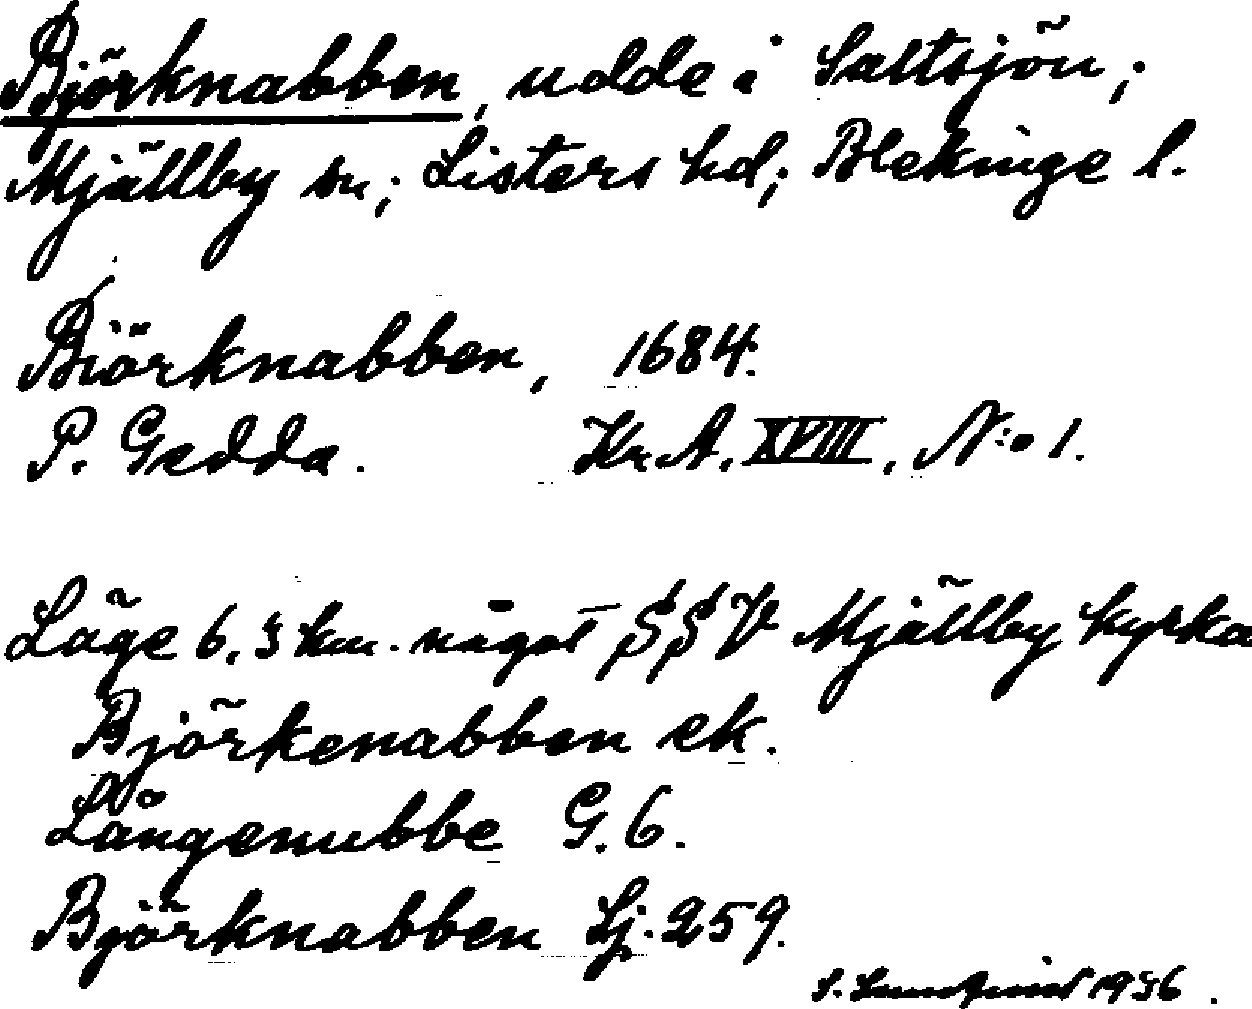 Björknabben, udde i Saltsjön;
Mjällby sn; Listers hd; Blekinge l.
Biörknabben, 1684.
P. Gedda. Kr.A. XVIII, N:o 1.
Läge 6,5 km. något SSV Mjällby kyrka
Björkenabben ek.
Långenubbe G.6.
Björknabben Lj. 259.
S. 1936.